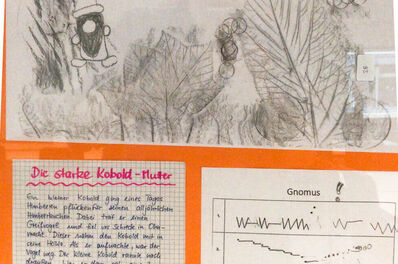 Die starke Kobold-Mutter
Ein kleiner Kobold ging eines Tages
Himbeeren pflücken für seinen alljährlichen
Himbeerkuchen. Dabei traf er einen
Greifvogel und fiel vor Schreck in Ohn-
macht. Dieser nahm den Kobold mit in
seine Höhle. Als er aufwachte, war der
Vogel weg. Der kleine Kobold rannte nach
Gnomus
1.
2.